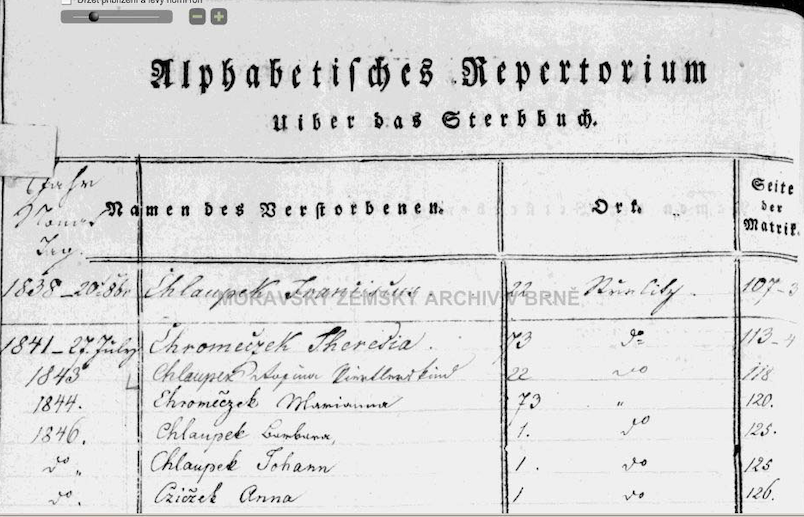 Držet přiblížení a levý horní roh
Alphabetisches Repertorium
Uiber das Sterbbuch.
Jahr
Monat
Tag.
Namen des Verstorbenen.
Ort.
Seite
der
Matrik.
1838 – 20 8br Chlaupek Franciscus. 22 107-3
MORAVSKÝ ZEMSKÝ ARCHIV V BRNĚ
1841 – 27. July Chromeczek Theresia. 73 do 113-4
1843 Chlaupek 22 do 118
1844. Chromeczek Marianna 73 " 120.
1846. Chlaupek Barbara, 1. do 125.
do " Chlaupek Johann 1. do 125
do. Cziczek Anna 1 do 126.